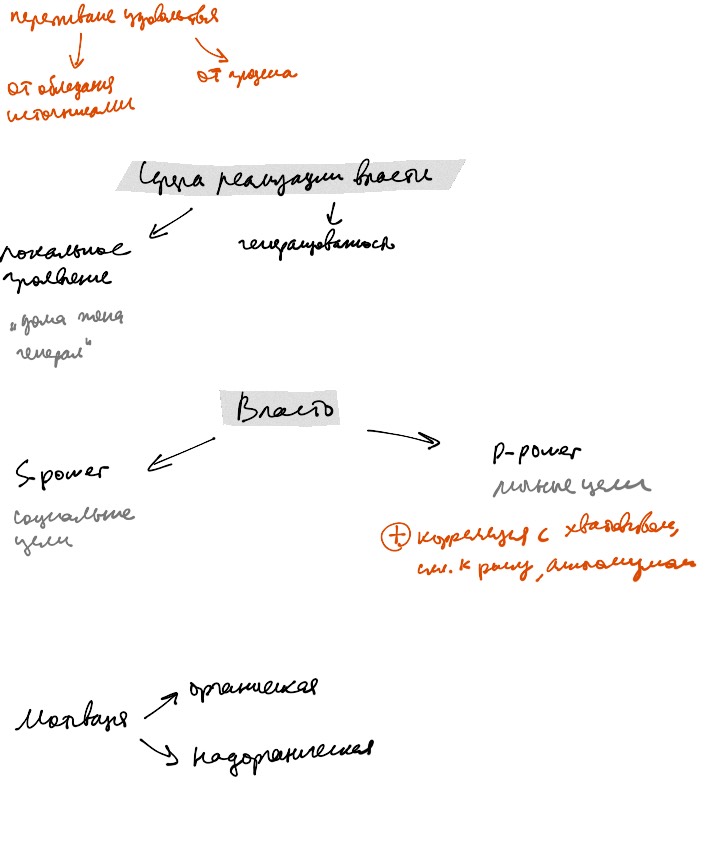 переживание удовольствия
от обладания
источниками
от процесса
Сфера реализации власти
локальное
проявление
генерализованность
„дома жена
генерал“
Власть
S-power
социальные
цели
p-power
личные цели
+ корреляция с хвастовством,
скл. к риску, алкоголизмом
Мотивация
органическая
надорганическая